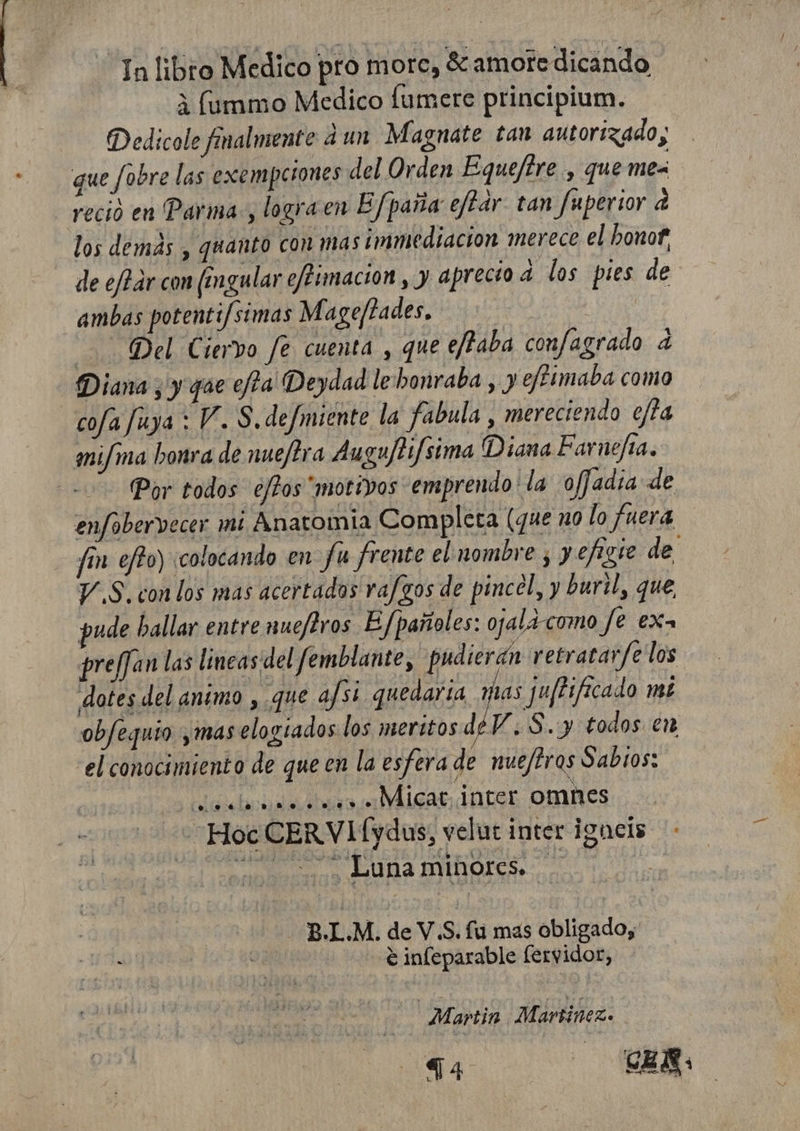 In libro Medico pro more, & amore dicando
à ſummo Medico ſumere principium.
Dedicole finalmente à un Magnate tan autorizado,
que ſobre las exempciones del Orden Equeſtre , que me-
reciò en Parma , logra en Eſpaña eſtàr tan ſuperior à
los demàs , quanto con mas immediacion merece el honor,
de eſtàr con ſingular eſtimacion , y aprecio à los pies de
ambas potentiſsimas Mageſtades.
Del Ciervo ſe cuenta , que eſtaba conſagrado à
Diana ; y que eſta Deydad le honraba , y eſtimaba como
coſa ſuya : V. S. deſmiente la fabula , mereciendo eſta
miſma honra de nueſtra Auguſtiſsima Diana Farneſia.
Por todos eſtos motivos emprendo la oſſadia de
enſobervecer mi Anatomia Completa (que no lo fuera
ſin eſto) colocando en ſu frente el nombre , y efigie de
V.S. con los mas acertados raſgos de pincèl, y burìl, que
pude hallar entre nueſtros Eſpañoles: ojalà como ſe ex-
preſſan las lineas del ſemblante, pudieràn retratarſe los
dotes del animo , que aſsi quedaria mas juſtificado mi
obſequio , mas elogiados los meritos de V. S. y todos en
el conocimiento de que en la esfera de nueſtros Sabios:
. . . . . . . . . . . . Micat inter omnes
Hoc CERVI ſydus, velut inter igneis
Luna minores.
B.L.M. de V.S. ſu mas obligado,
è inſeparable ſervidor,
Martin Martinez.
¶ 4 CER.